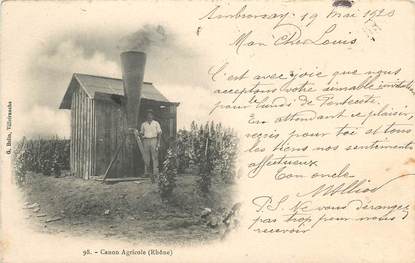 19 Mai 1903
Mon Cher Louis
C'est avec joie que nous
acceptons votre aimable invitation
pour lundi de Pentecôte.
En attendant ce plaisir,
reçois pour toi et tous
les tiens nos sentiments
affectueux
Ton oncle
P.S. Ne vous dérangez
pas trop pour nous
recevoir
G. Belin, Villefranche
98. - Canon Agricole (Rhône)